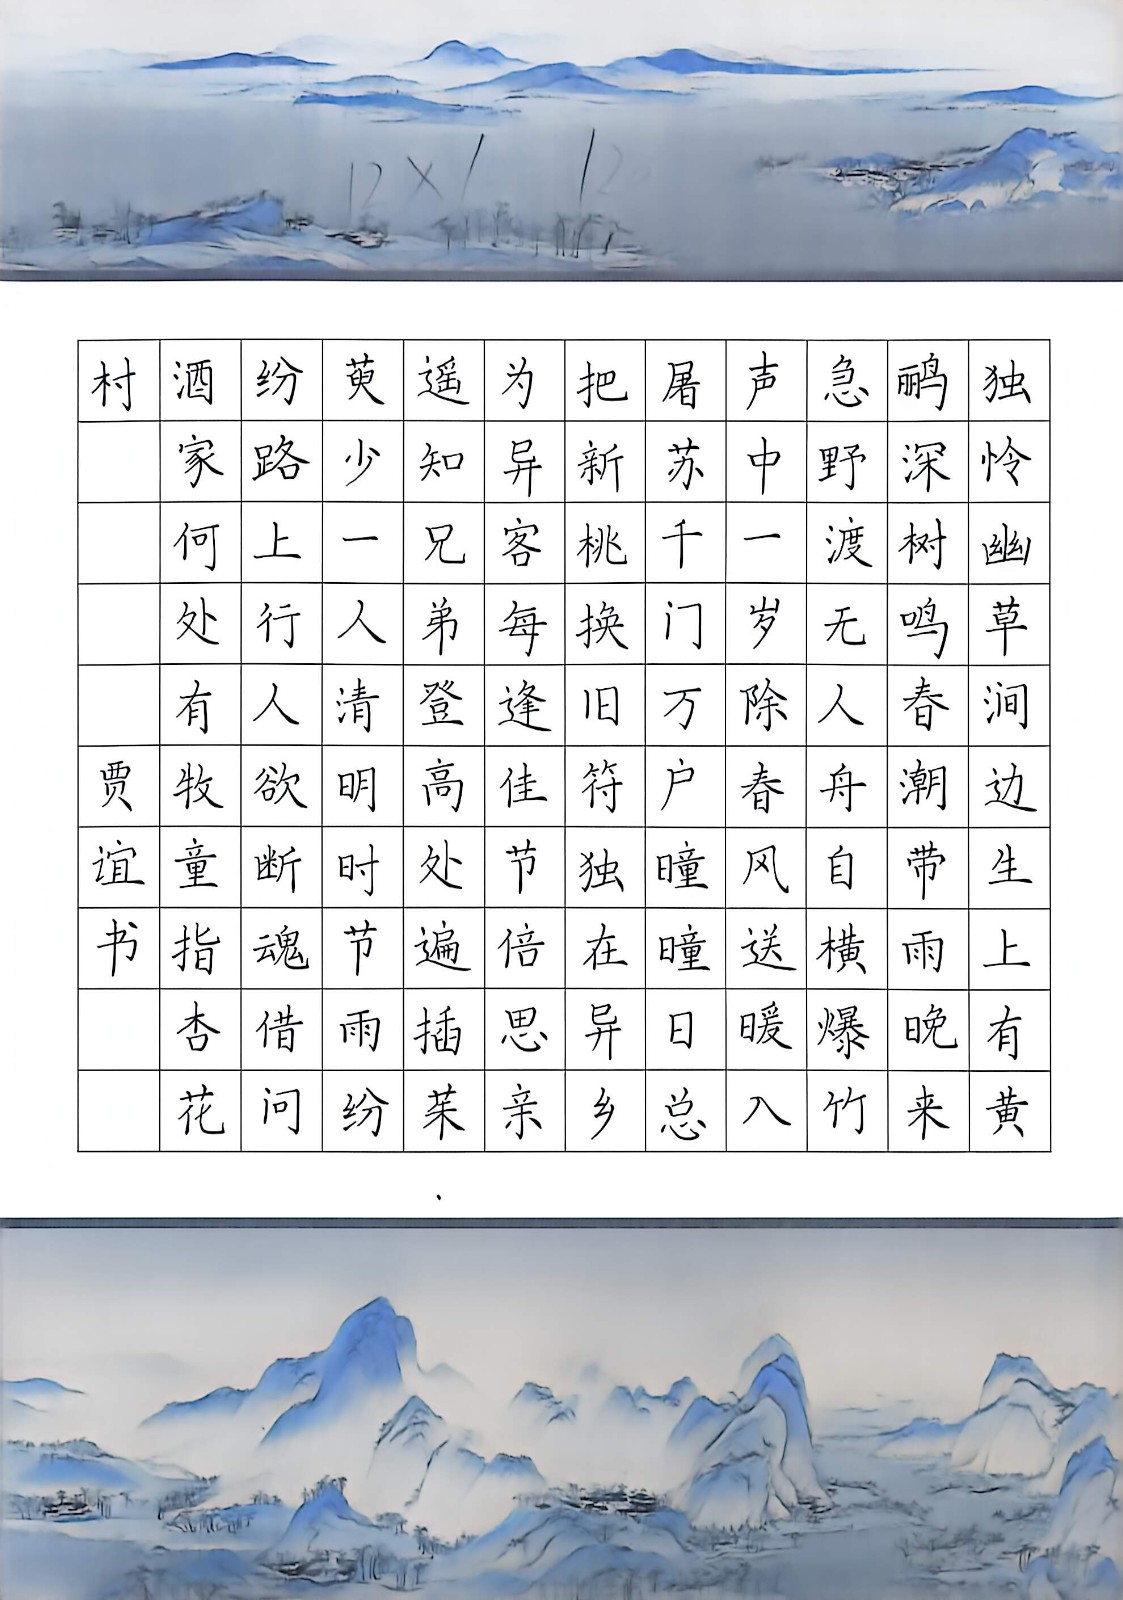 独怜幽草涧边生上有黄
鹂深树鸣春潮带雨晚来
急野渡无人舟自横爆竹
声中一岁除春风送暖入
屠苏千门万户曈曈日总
把新桃换旧符独在异乡
为异客每逢佳节倍思亲
遥知兄弟登高处遍插茱
萸少一人清明时节雨纷
纷路上行人欲断魂借问
酒家何处有牧童指杏花
村 贾谊书